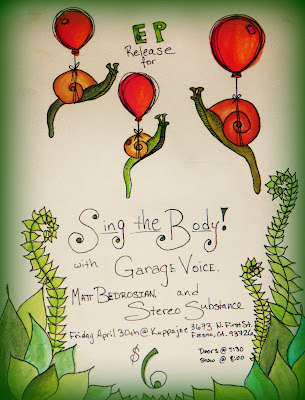 EP
Release
for
Sing the Body!
with Garage Voice.
Matt Bedrosian and
Stereo Substance
Friday April 30th @ Kuppajoe 3673 N. First St.
Fresno, CA. 93726
Doors @ 7:30
Show @ 8:00
$6